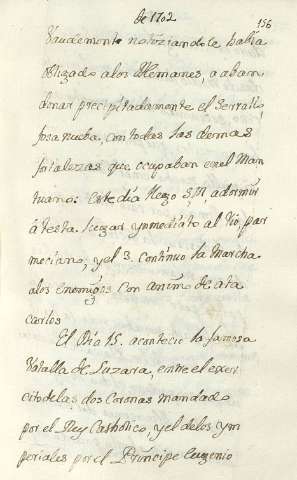 de 1702
156
Vaudemont notiziandole había
obligado alos Alemanes, a aban
donar precipitadamente el Serrallo,
fosa nueba, con todas las demas
fortalezas que ocupaban enel Man
tuano: Este día llego S.M. adormir
á testa. lugar ynmediato al Rio, par
meciano, y el 3. Continuo la Marcha
alos enemigos con animo de ata
carlos
El Dia 15. acontecio la famosa
Vatalla de Luzara, entre el exer
cito delas dos Coronas mandado
por el Rey Catholico, y el delos ym
periales por el Príncipe Eugenio